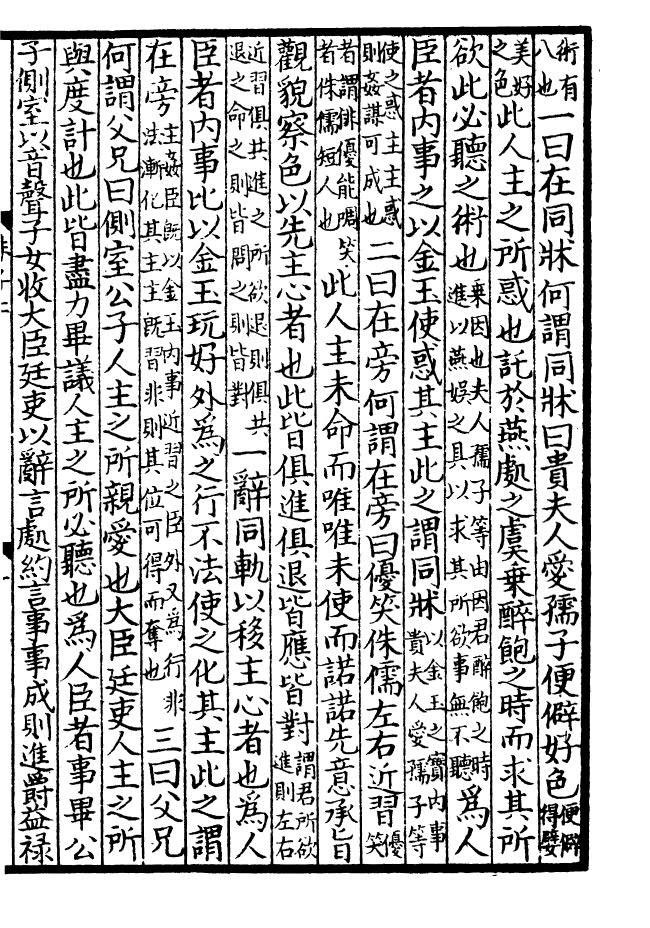 術有八也一曰在同牀何謂同牀曰貴夫人愛孺子便僻好色便僻得嬖
美好之色此人主之所惑也託於燕處之虞乗醉飽之時而求其所
欲此必聽之術也乗因也夫人孺子等由因君醉飽之時進以燕娱之具以求其所欲事無不聽爲人
臣者内事之以金玉使惑其主此之謂同牀以金玉之寳内事貴夫人愛孺子等
使之惑主主惑則姦謀可成也二曰在旁何謂在旁曰優笑侏儒左右近習優笑
者謂俳優能啁笑者侏儒短人也此人主未命而唯唯未使而諾諾先意承旨
觀貌察色以先主心者也此皆俱進俱退皆應皆對謂君所欲進則左右
近習俱共進之所欲退則俱共退之命之則皆問之則皆對一辭同軌以移主心者也爲人
臣者内事比以金玉玩好外爲之行不法使之化其主此之謂
在旁主姦臣既以金玉内事近習之臣外又爲行非法漸化其主主既習非則其位可得而奪也三曰父兄
何謂父兄曰側室公子人主之所親愛也大臣廷吏人主之所
與度計也此皆盡力畢議人主之所必聽也爲人臣者事畢公
子側室以音聲子女收大臣廷吏以辭言處約言事事成則進爵益禄